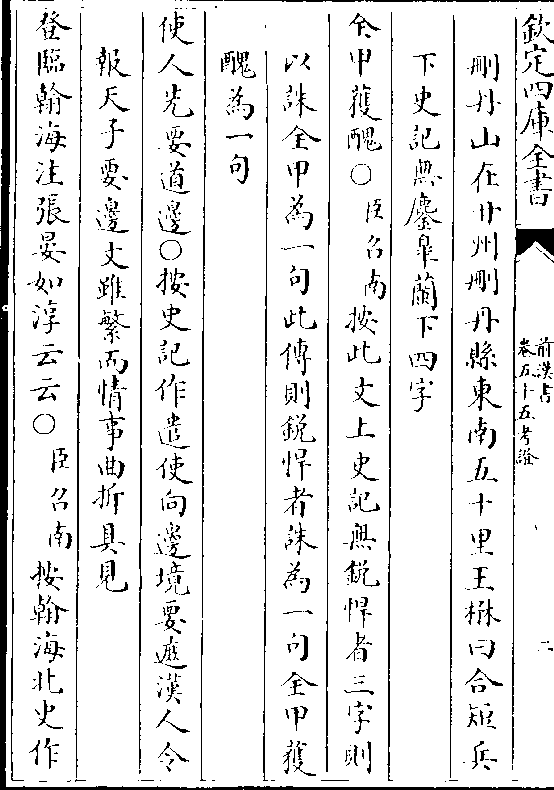 欽定四庫全書
前漢書
卷五十五考證
二
刪丹山在甘州刪丹縣東南五十里王楙曰合短兵
下史記無鏖臯蘭下四字
全甲獲醜○臣召南按此文上史記無銳悍者三字則
以誅全甲為一句此傳則銳悍者誅為一句全甲獲
醜為一句
使人先要道邊○按史記作遣使向邊境要遮漢人令
報天子要邊文雖繁而情事曲折具見
登臨翰海注張晏如淳云云○臣召南按翰海北史作